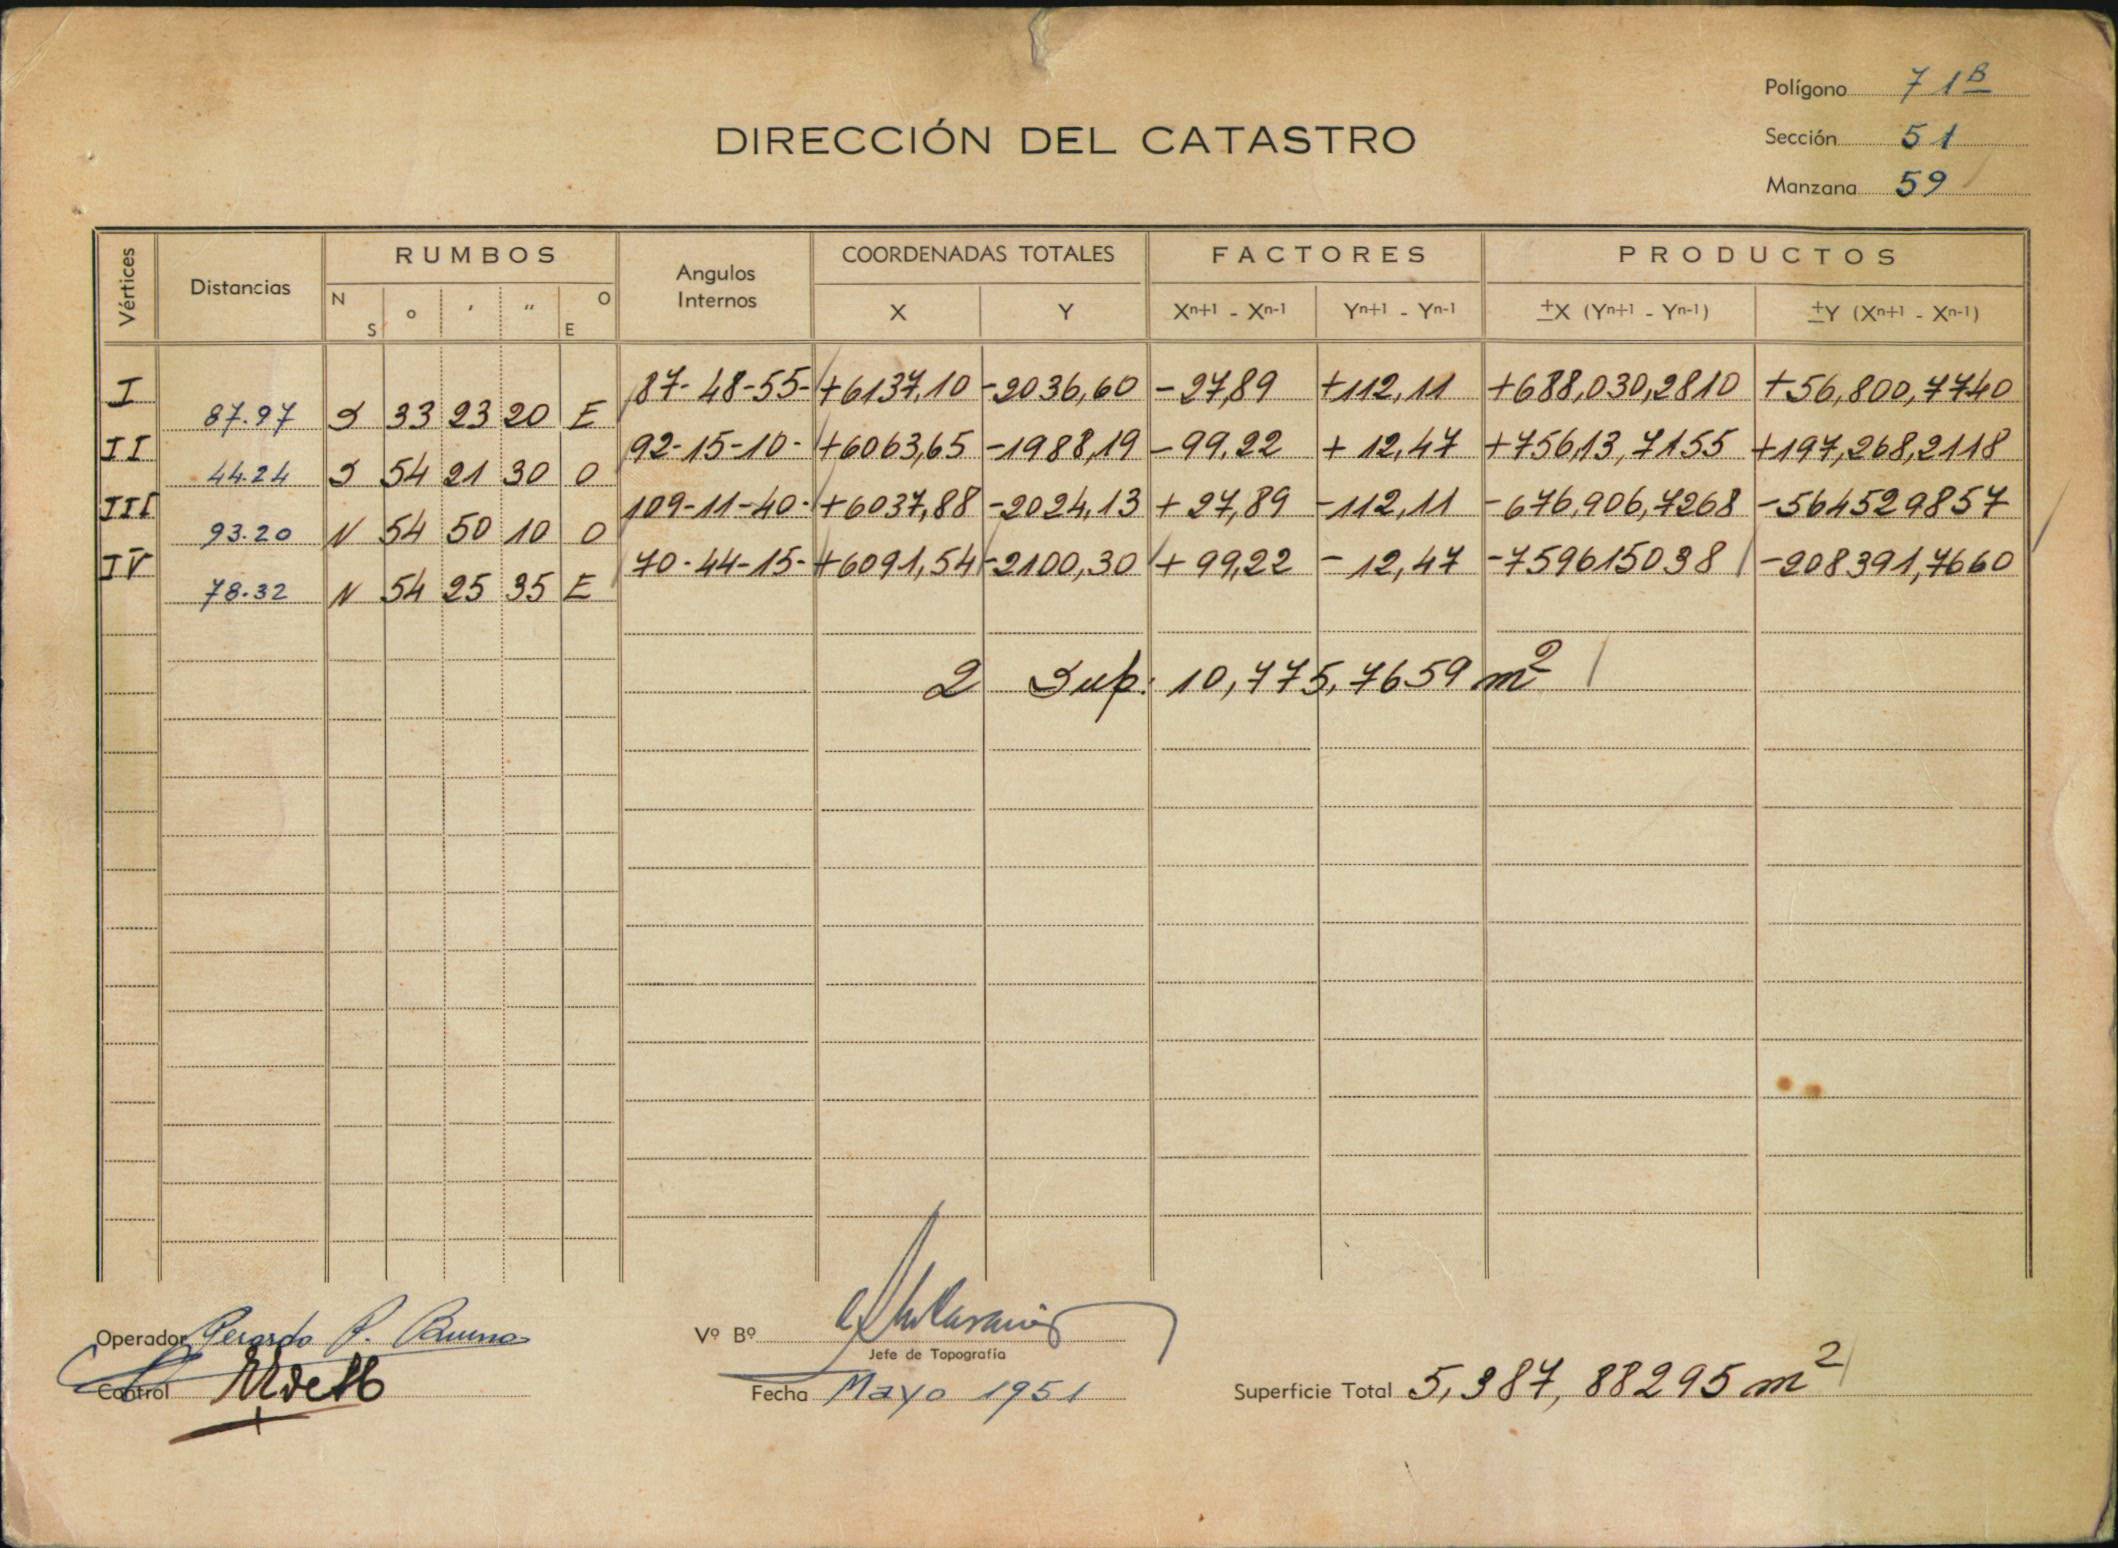 Polígono 71B
DIRECCIÓN DEL CATASTRO
Sección 51
Manzana 59
Vértices Distancias RUMBOS Angulos Internos COORDENADAS TOTALES FACTORES PRODUCTOS
N S o ' " O E X Y Xn+1 - Xn-1 Yn+1 - Yn-1 ±X (Yn+1 - Yn-1) ±Y (Xn+1 - Xn-1)
I 87-48-55- +6137,10 -2036,60 -27,89 +112,11 +688,030,2810 +56,800,7740
87.97 S 33 23 20 E
II 92-15-10- +6063,65 -1988,19 -99,22 +12,47 +75613,7155 +197,268,2118
44.24 S 54 21 30 O
III 109-11-40- +6037,88 -2024,13 +27,89 -112,11 -676,906,7268 -564529857
93.20 N 54 50 10 O
IV 70-44-15- +6091,54 -2100,30 +99,22 -12,47 -759615038 -208391,7660
78.32 N 54 25 35 E
2 Sup: 10,775,7659 m2
Operador Gerardo P. Bueno
Vº Bº
Jefe de Topografía
Control
Fecha Mayo 1951
Superficie Total 5,387,88295 m2